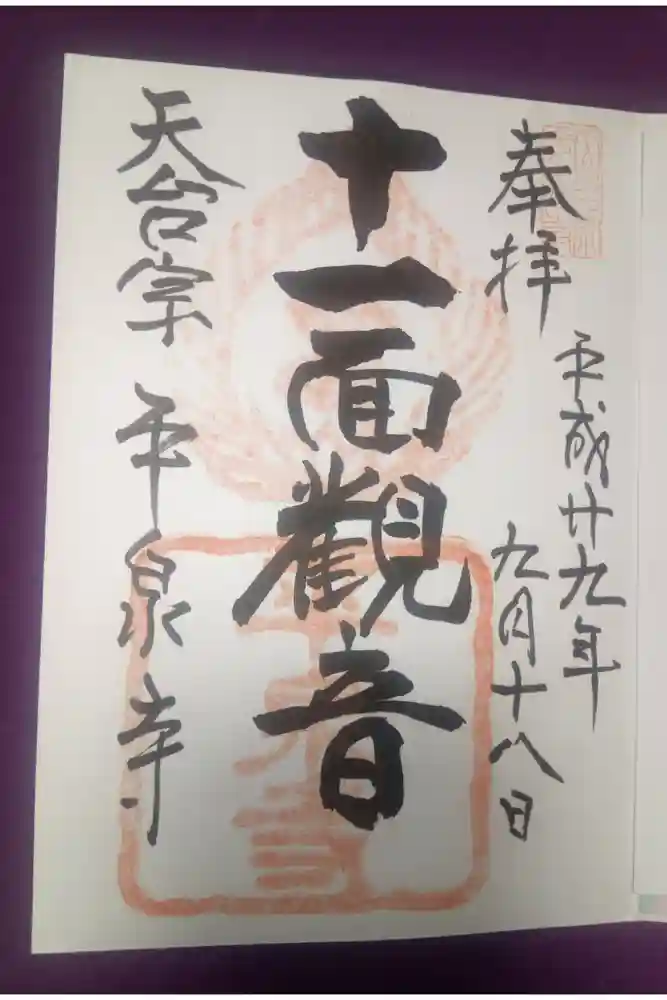 奉拝
平成廿九年
九月十八日
十一面觀音
天台宗 平泉寺